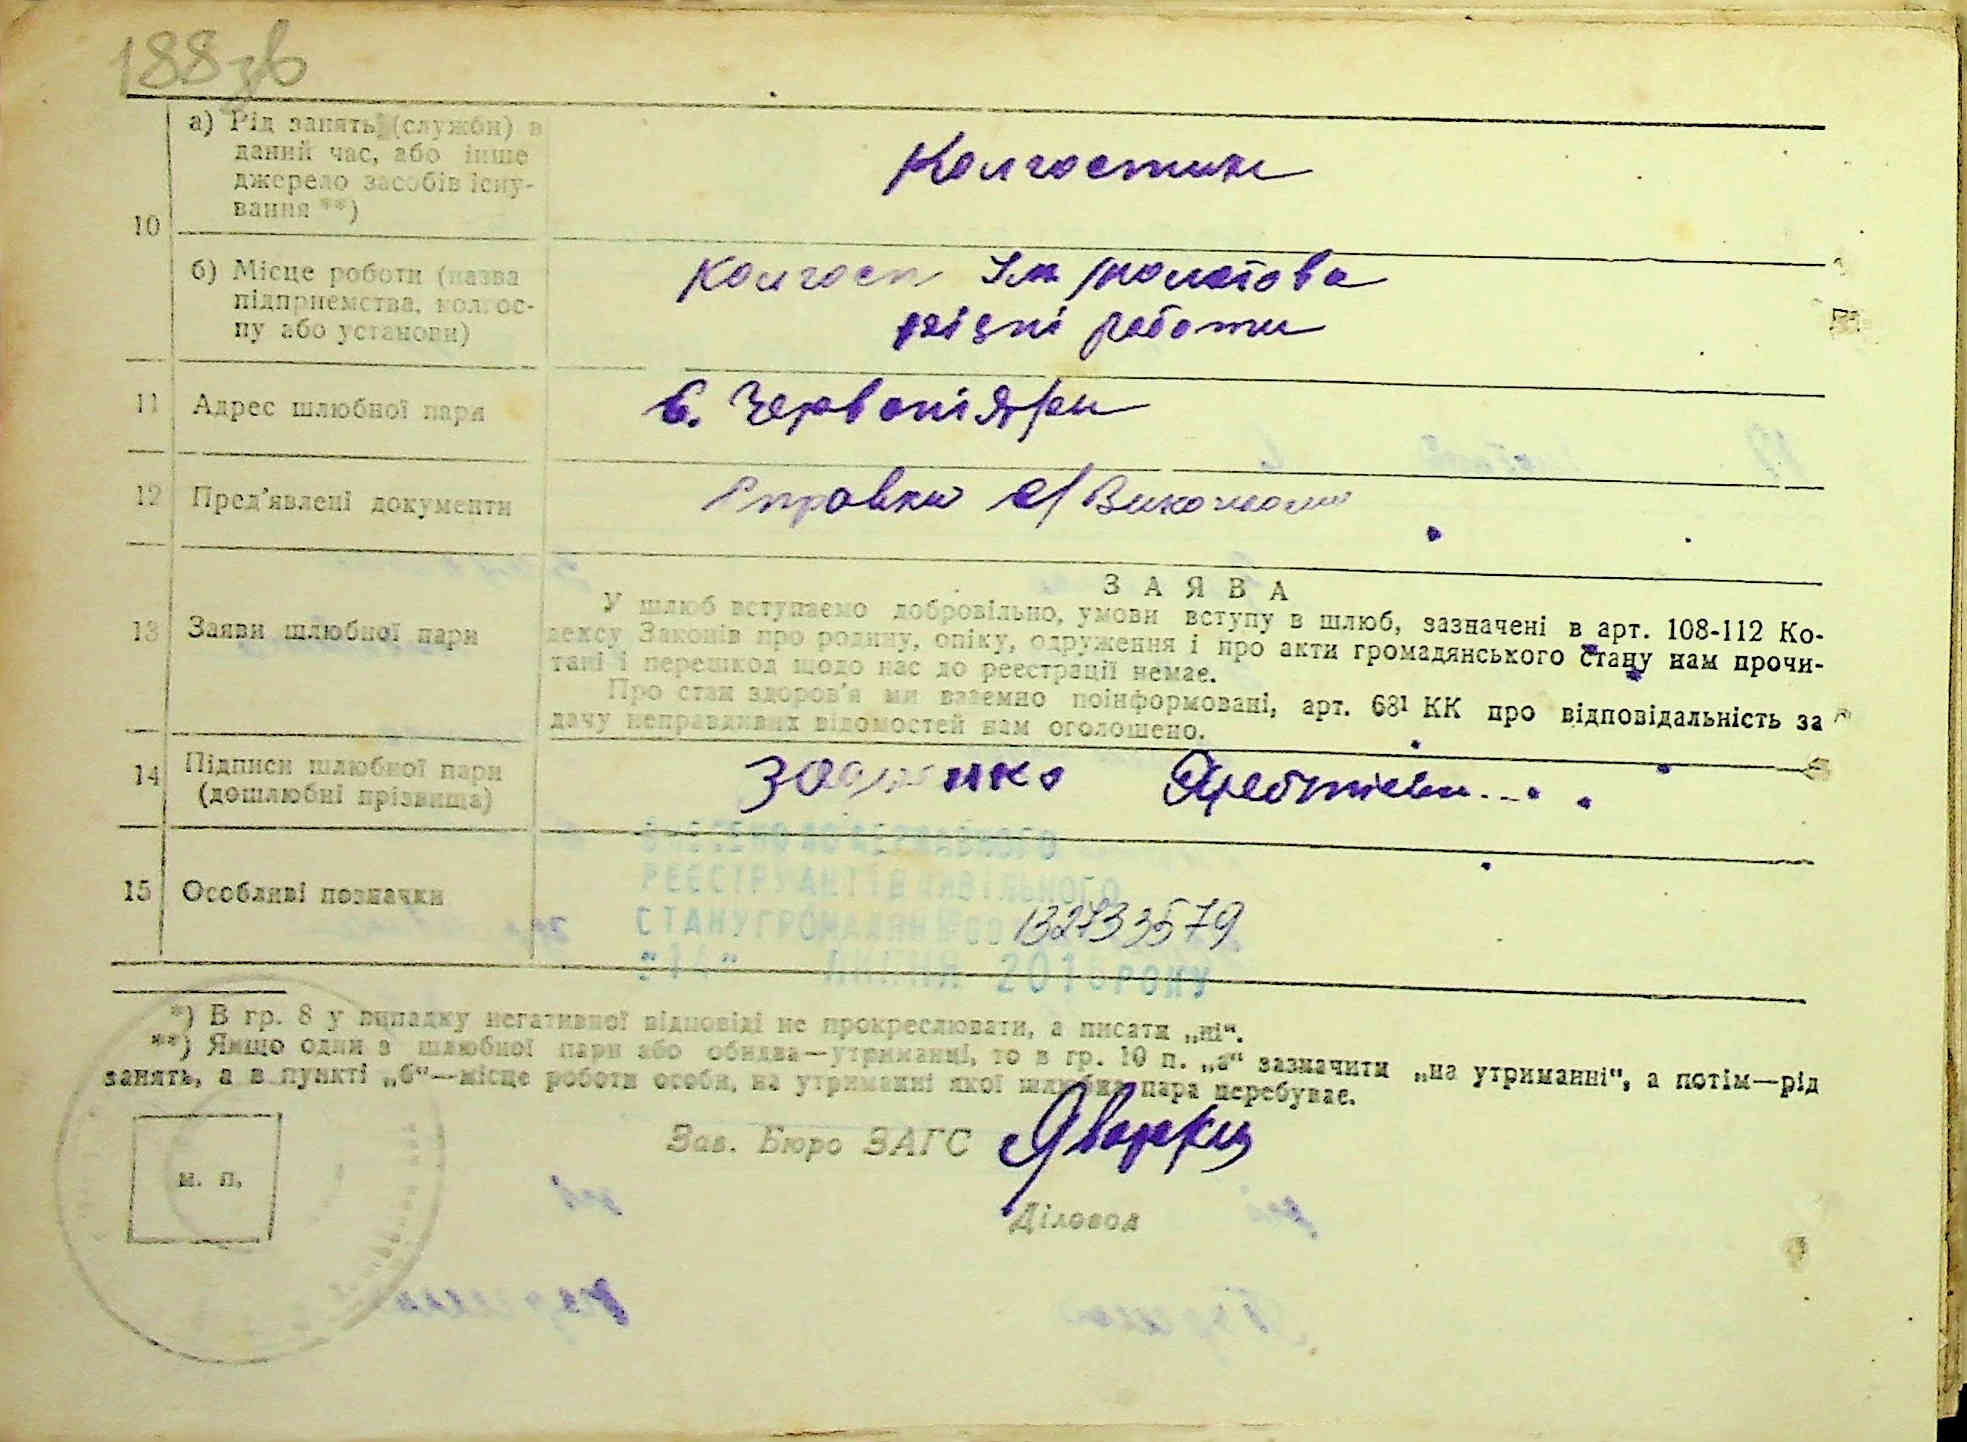 188зв
10
а) Рід занять (служби) в
даний час, або інше
джерело засобів існу-
вання **)
Колгоспник
б) Місце роботи (назва
підприємства, колгос-
пу або установи)
Колгосп Ім Молотова
різні роботи
11 Адрес шлюбної пари
12 Пред'явлені документи
Справки с/Виконкому
13 Заяви шлюбної пари
ЗАЯВА
У шлюб вступаємо добровільно, умови вступу в шлюб, зазначені в арт. 108-112 Ко-
дексу Законів про родину, опіку, одруження і про акти громадянського стану нам прочи-
тані і перешкод щодо нас до реєстрації немає.
Про стан здоров'я ми взаємно поінформовані, арт. 68¹ КК про відповідальність за
дачу неправдивих відомостей нам оголошено.
14 Підписи шлюбної пари
(дошлюбні прізвища)
15 Особливі позначки
ВНЕСЕНО ДО ДЕРЖАВНОГО
РЕЄСТРУ АКТІВ ЦИВІЛЬНОГО
СТАНУ ГРОМАДЯН № 00 132733579
"14" ЛИПНЯ 2016 РОКУ
*) В гр. 8 у випадку негативної відповіді не прокреслювати, а писати „ні“.
**) Якщо один з шлюбної пари або обидва—утриманці, то в гр. 10 п. „а“ зазначити „на утриманні“, а потім—рід
занять, а в пункті „б“—місце роботи особи, на утриманні якої шлюбна пара перебуває.
Зав. Бюро ЗАГС
м. п.
Діловод